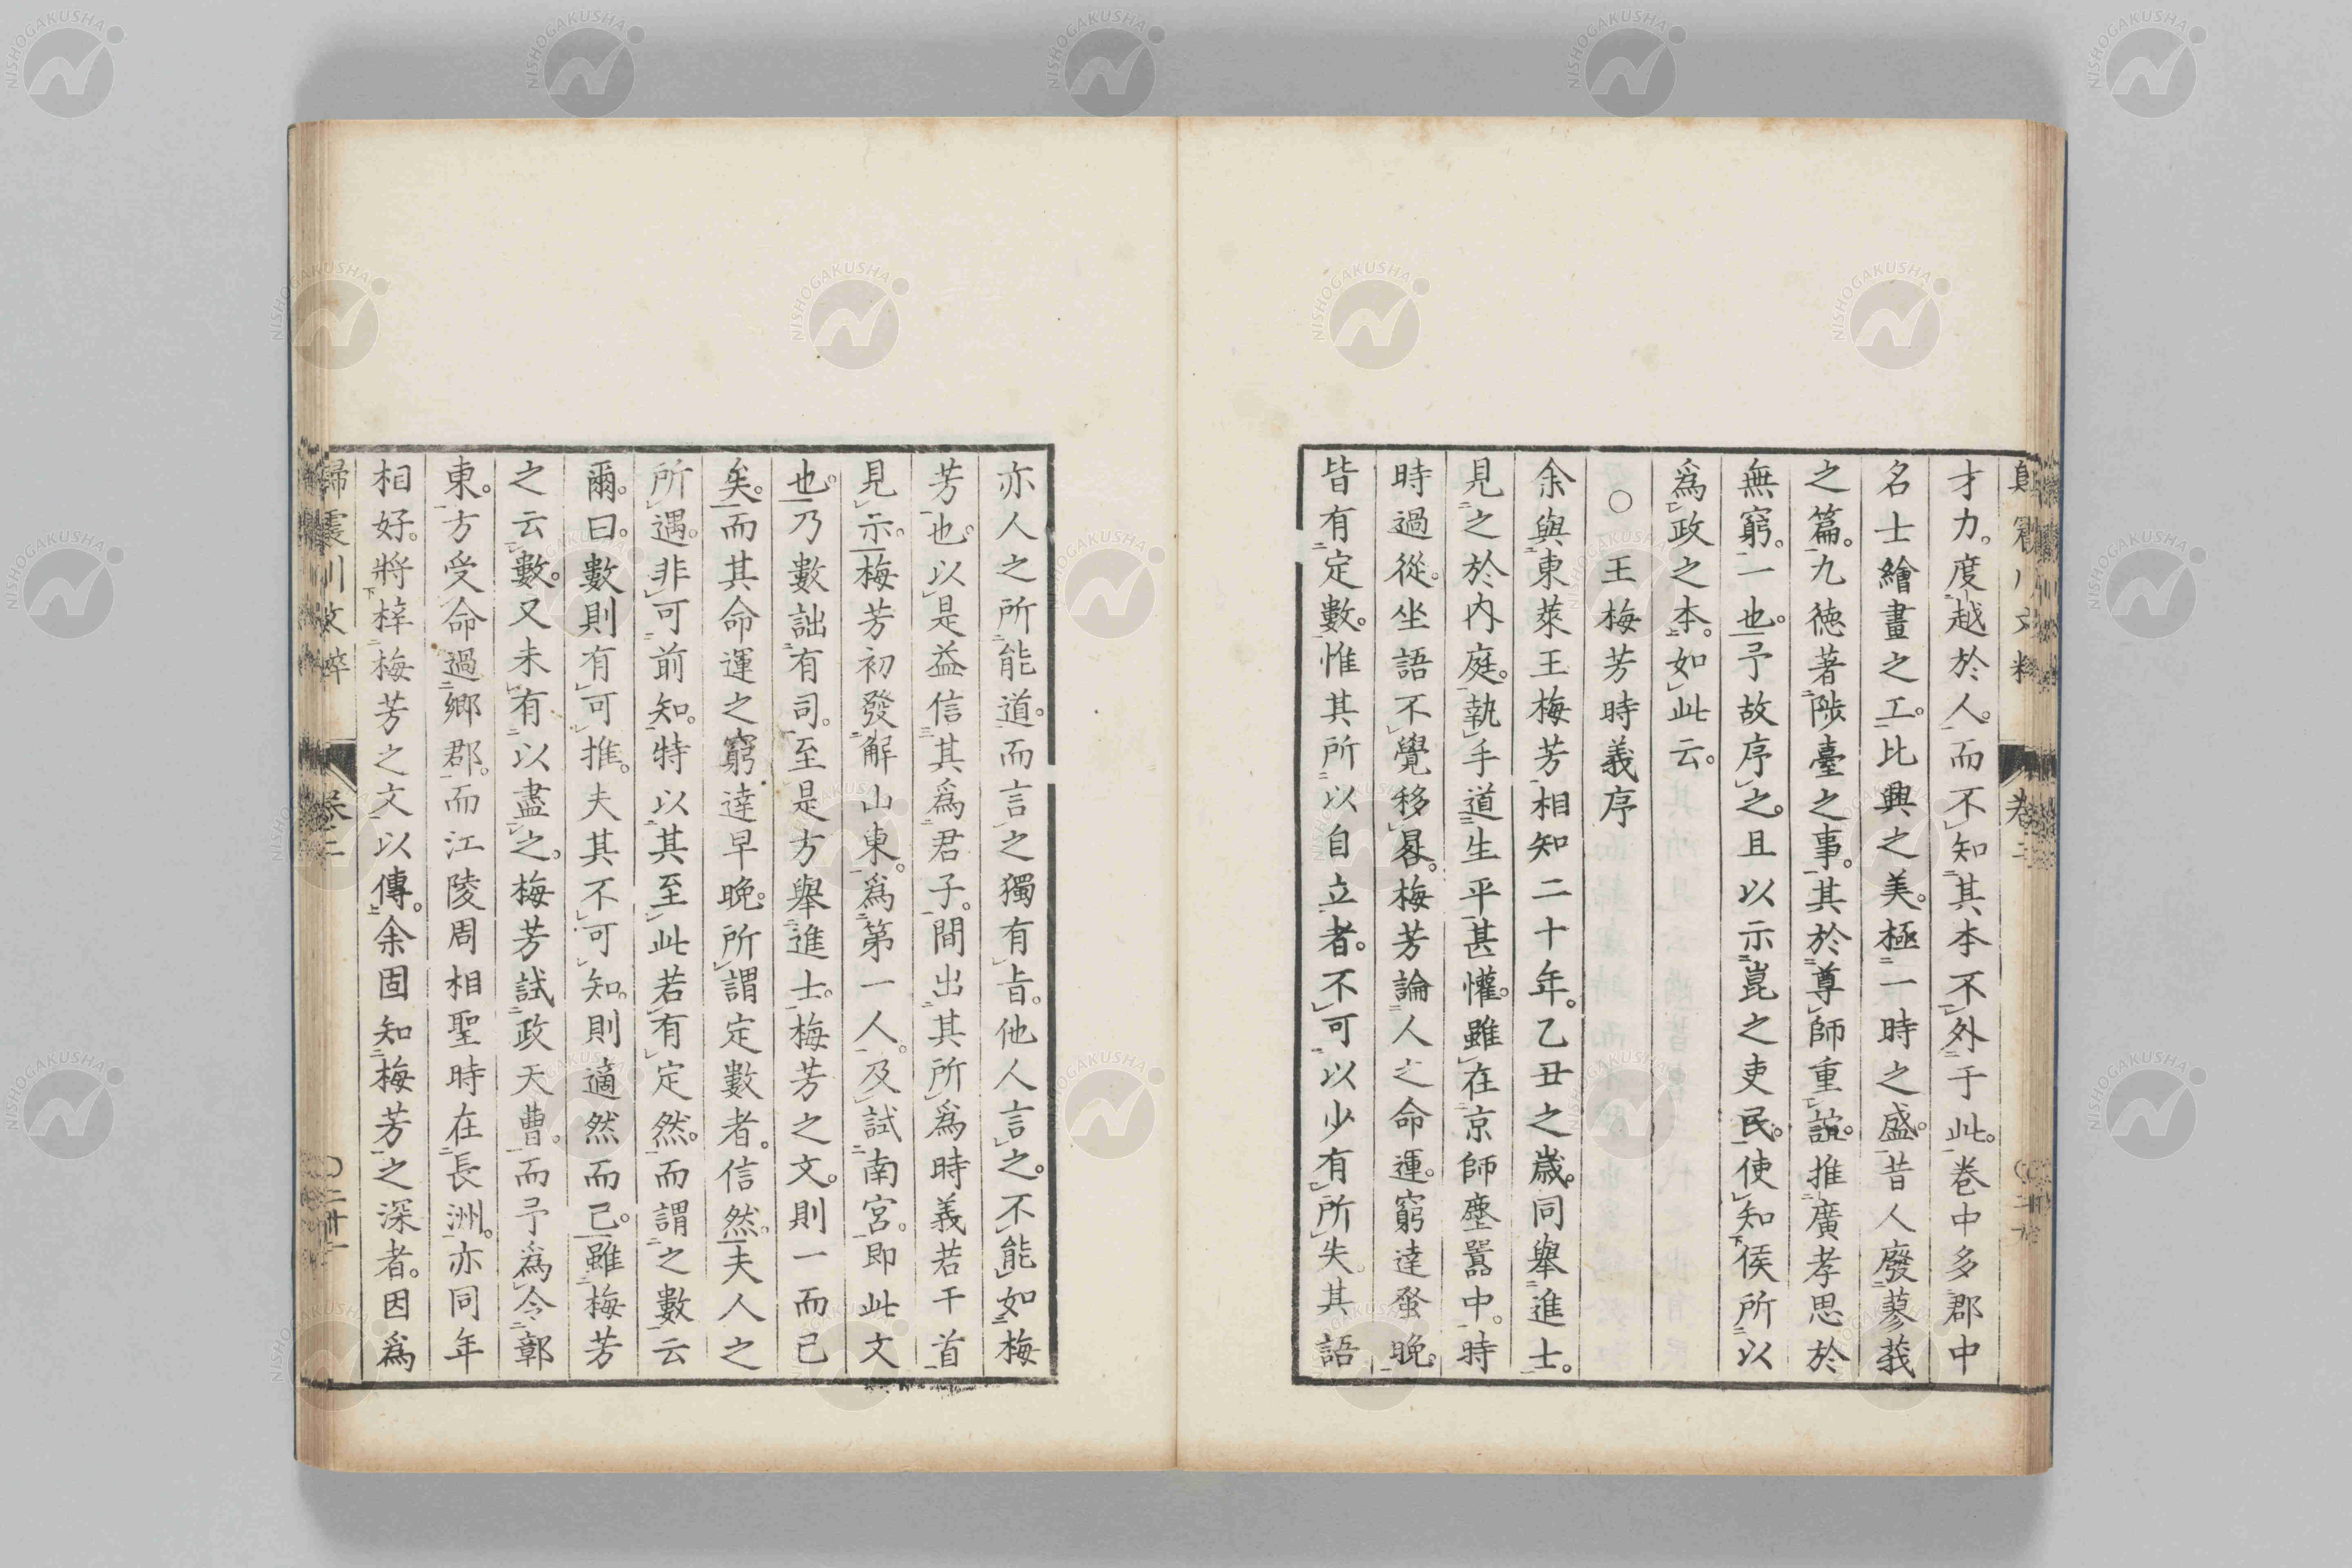 才力。度越於人。而不知其本不外于此。卷中多郡中
名士繪畫之工。比興之美。極一時之盛。昔人廢蓼莪
之篇。九德著陟臺之事。其於尊師重誼。推廣孝思於
無窮。一也。予故序之。且以示崑之吏民。使知侯所以
爲政之本。如此云。
○王梅芳時義序
余與東萊王梅芳相知二十年。乙丑之歲。同舉進士。
見之於內庭。執手道生平甚懽。雖在京師塵囂中。時
時過從。坐語不覺移晷。梅芳論人之命運。窮達蚤晚。
皆有定數。惟其所以自立者。不可以少有所失。其語
亦人之所能道。而言之獨有旨。他人言之。不能如梅
芳也。以是益信其爲君子。間出其所爲時義若干首
見示。梅芳初發解山東。爲第一人。及試南宮。即此文
也。乃數詘有司。至是方舉進士。梅芳之文。則一而已
矣。而其命運之窮達早晚。所謂定數者。信然。夫人之
所遇。非可前知。特以其至此若有定然。而謂之數云
爾。曰。數則有可推。夫其不可知。則適然而已。雖梅芳
之云數。又未有以盡之。梅芳試政天曹。而予爲令鄣
東。方受命過鄉郡。而江陵周相聖時在長洲。亦同年
相好。將梓梅芳之文以傳。余固知梅芳之深者。因爲
歸震川文粹 卷二 〇二十二
NISHOGAKUSHA